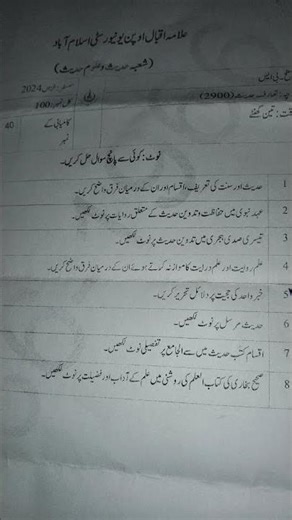 علامہ اقبال اوپن یونیورسٹی اسلام آباد
(شعبہ حدیث و علوم حدیث)
سطح۔ بی ایس
سمسٹر: خزاں 2024
پرچہ: تعارف حدیث (2900)
کل نمبر: 100
وقت: تین گھنٹے
کامیابی کے نمبر 40
نوٹ: کوئی سے پانچ سوال حل کریں۔
1 حدیث اور سنت کی تعریف، اقسام اور ان کے درمیان فرق واضح کریں۔
2 عہد نبوی میں حفاظت و تدوین حدیث کے متعلق روایات پر نوٹ لکھیں۔
3 تیسری صدی ہجری میں تدوین حدیث پر نوٹ لکھیں۔
4 علم روایت اور علم درایت کا موازنہ کرتے ہوئے ان کے درمیان فرق واضح کریں۔
5 خبر واحد کی حجیت پر دلائل تحریر کریں۔
6 حدیث مرسل پر نوٹ لکھیں۔
7 اقسام کتب حدیث میں سے الجامع پر تفصیلی نوٹ لکھیں۔
8 صحیح بخاری کی کتاب العلم کی روشنی میں علم کے آداب اور فضیلت پر نوٹ لکھیں۔